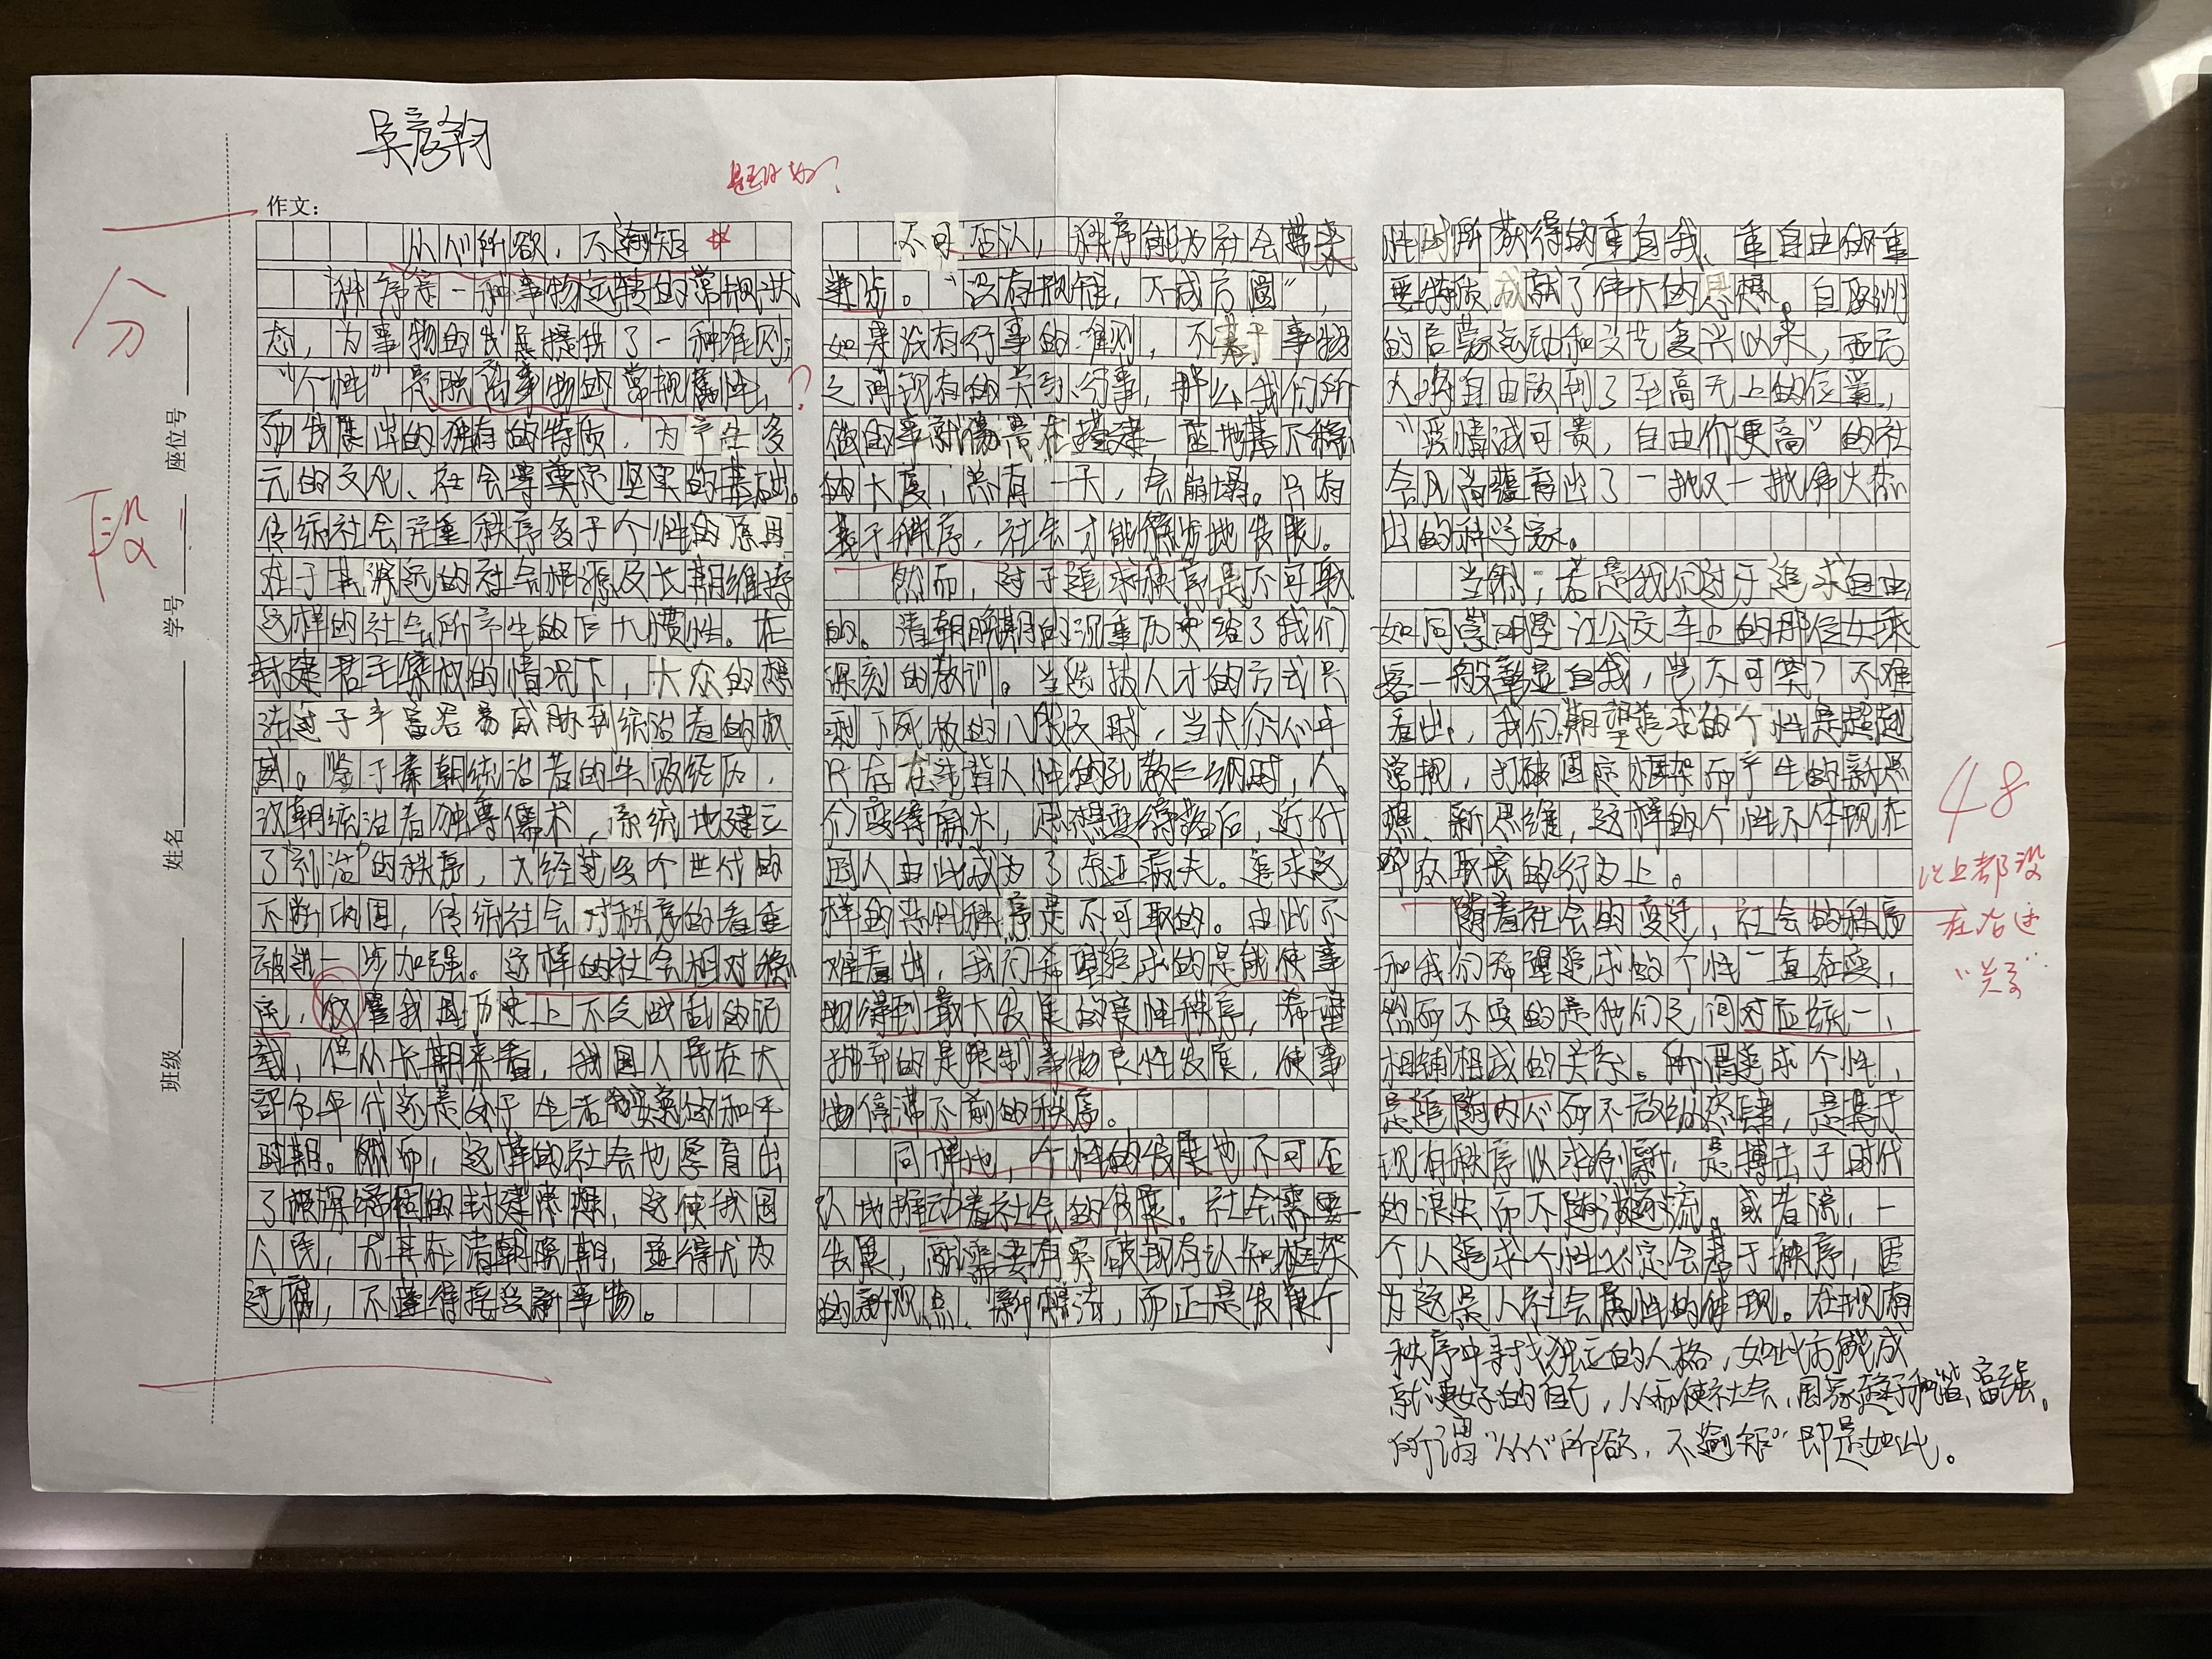 吴彦翰
是否以为？
作文：
分
段
班级 姓名 学号 座位号
从心所欲，不逾矩
秩序是一种事物运转的常规状
态，为事物的发展提供了一种准则；
“个性”是脱离事物的常规属性，？
而发展出的独有的特质，为产生多
元的文化、社会等奠定坚实的基础。
传统社会注重秩序多于个性的原因
在于其深远的社会根源及长期维持
这样的社会所产生的巨大惯性。在
封建君主集权的情况下，大众的想
法过于丰富容易威胁到统治者的权
威。鉴于秦朝统治者的失败经历，
汉朝统治者独尊儒术，系统地建立
了“剥治”的秩序，大经过多个世代的
不断巩固，传统社会对秩序的看重
被进一步加强。这样的社会相对稳
定，纵量我国历史上不乏叛乱的记
载，但从长期来看，我国人民在大
部分年代还是处于生活安定的和平
时期。然而，这样的社会也孕育出
了根深蒂固的封建思想，这使我国
人民，尤其在清朝晚期，显得尤为
迂腐，不懂得接受新事物。
不可否认，秩序能为社会带来
进步。“没有规矩，不成方圆”，
如果没有行事的准则，不基于事物
之间现有的关系行事，那么我们所
做的事就像是在搭建一座地基不稳
的大厦，总有一天，会崩塌。只有
基于秩序，社会才能稳步地发展。
然而，过于追求秩序是不可取
的。清朝晚期的沉重历史给了我们
深刻的教训。当选拔人才的方式只
剩下死板的八股文时，当大众心中
只存在违背人性的礼教三纲时，人
们变得麻木，思想变得落后，近代
国人由此成为了东亚病夫。追求这
样的恶性秩序是不可取的。由此不
难看出，我们希望追求的是能使事
物得到最大发展的良性秩序，希望
摒弃的是限制事物良性发展，使事
物停滞不前的秩序。
同样地，个性的发展也不可否
认地推动着社会的发展。社会需要
发展，就需要有突破现有认知框架
的新观点、新想法，而正是发展个
性时所获得的重自我、重自由的重
要特质成就了伟大的思想。自欧洲
的启蒙运动和文艺复兴以来，西方
人将自由放到了至高无上的位置，
“爱情诚可贵，自由价更高”的社
会风尚孕育出了一批又一批伟大杰
出的科学家。
当然，若是我们过于追求自由
如同崇明坠江公交车上的那位女乘
客一般彰显自我，岂不可笑？不难
看出，我们期望追求的个性是超越
常规，打破固定框架而产生的新思
想、新思维，这样的个性不体现在
哗众取宠的行为上。
随着社会的变迁，社会的秩序
和我们希望追求的个性一直在变，
然而不变的是他们之间对应统一、
相辅相成的关系。所谓追求个性，
是追随内心而不放纵恣肆，是基于
现有秩序以求创新，是搏击于时代
的浪尖而不随波逐流。或者说，一
个人追求个性必定会基于秩序，因
为这是人社会属性的体现。在现有
秩序中寻找独立的人格，如此方能成
就更好的自己，从而使社会、国家趋于和谐、富强。
所谓“从心所欲，不逾矩”即是如此。
48
以上都没
在右边
“关系”